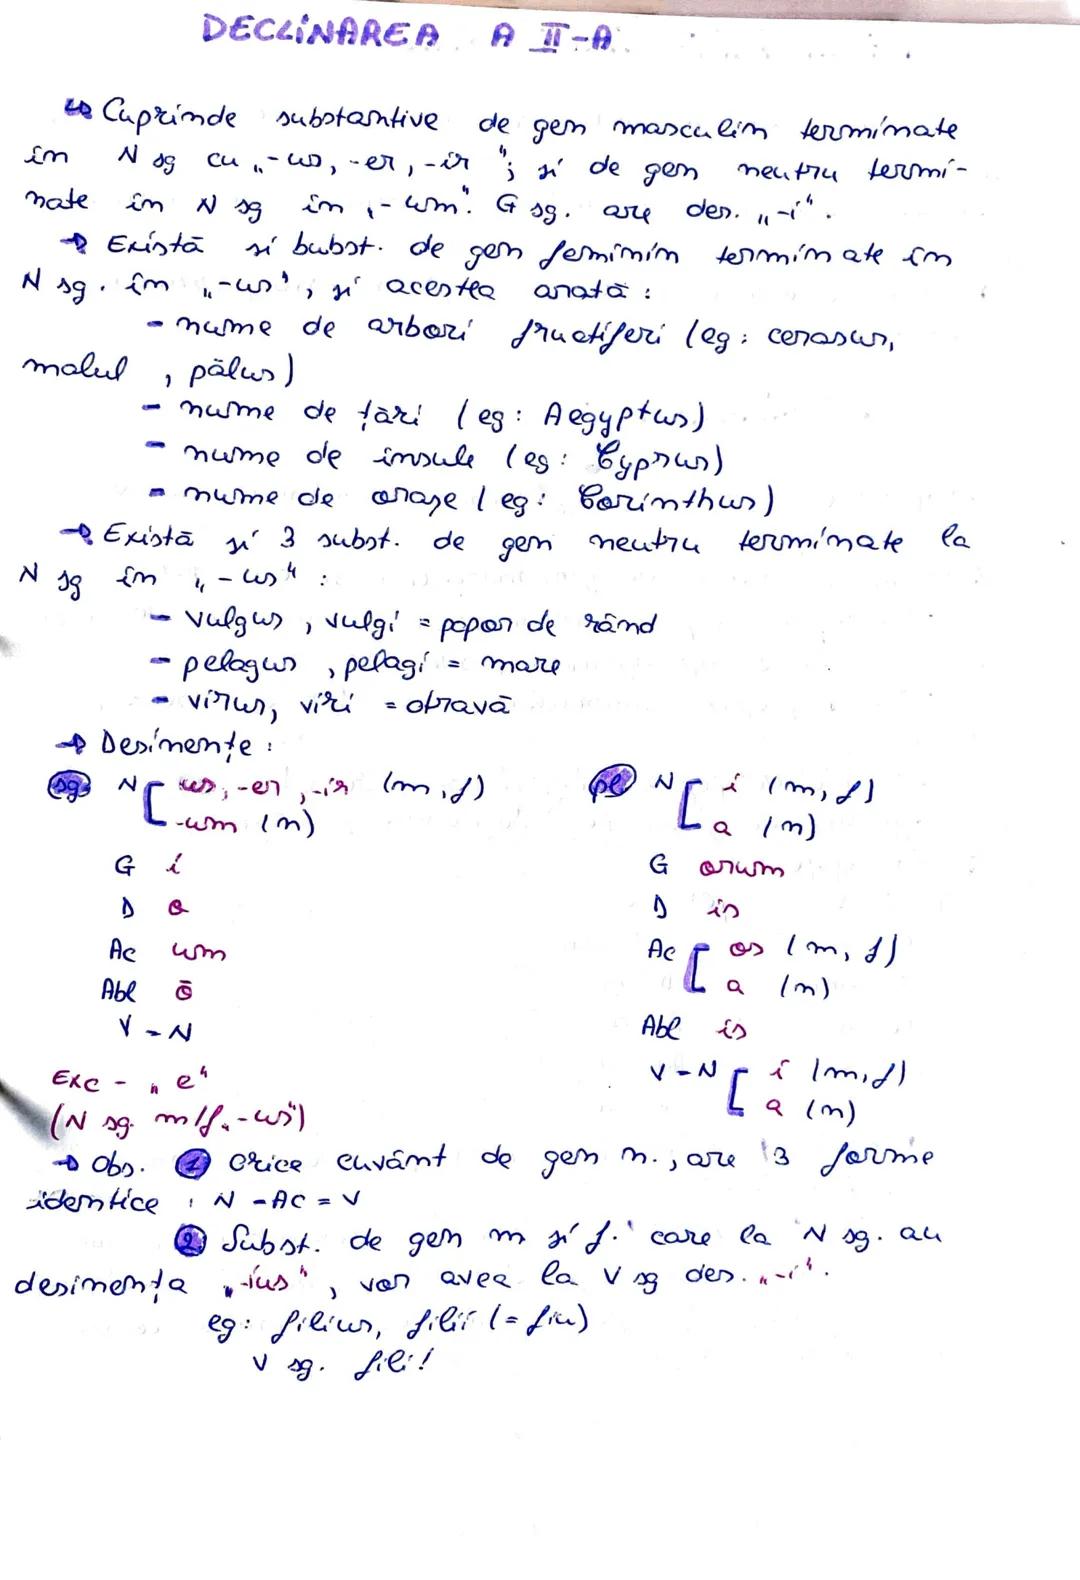 DECLINAREA A II-A
↳ Cuprinde substantive de gen masculin terminate
în N sg cu „-us, -er, -ir"; și de gen neutru termi-
nate în N sg în „-um". G sg. are des. „-i".
→ Există și subst. de gen feminin terminate în
N sg. în „-us", și acestea arată:
- nume de arbori fructiferi (eg: cerasus,
malul, pălus)
- nume de țări (eg: Aegyptus)
- nume de insule (eg: Cyprus)
- nume de orașe (eg: Corinthus)
→ Există și 3 subst. de gen neutru terminate la
N sg în „-us":
- vulgus, vulgi = popor de rând
- pelagus, pelagi = mare
- virus, viri = otravă
→ Desinențe:
sg N [ us, -er, -ir (m, f)
-um (n)
G i
D o
Ac um
Abl ō
V = N
Exc - „e"
(N sg. m/f. „-us")
pl N [ i (m, f)
a (n)
G orum
D is
Ac [ os (m, f)
a (n)
Abl is
V = N [ i (m, f)
a (n)
→ Obs. 1 Orice cuvânt de gen n., are 3 forme
identice: N = AC = V
2 Subst. de gen m și f. care la N sg. au
desinența „-ius", vor avea la V sg des. „-i".
eg: filius, filii (= fiu)
V sg. fili!